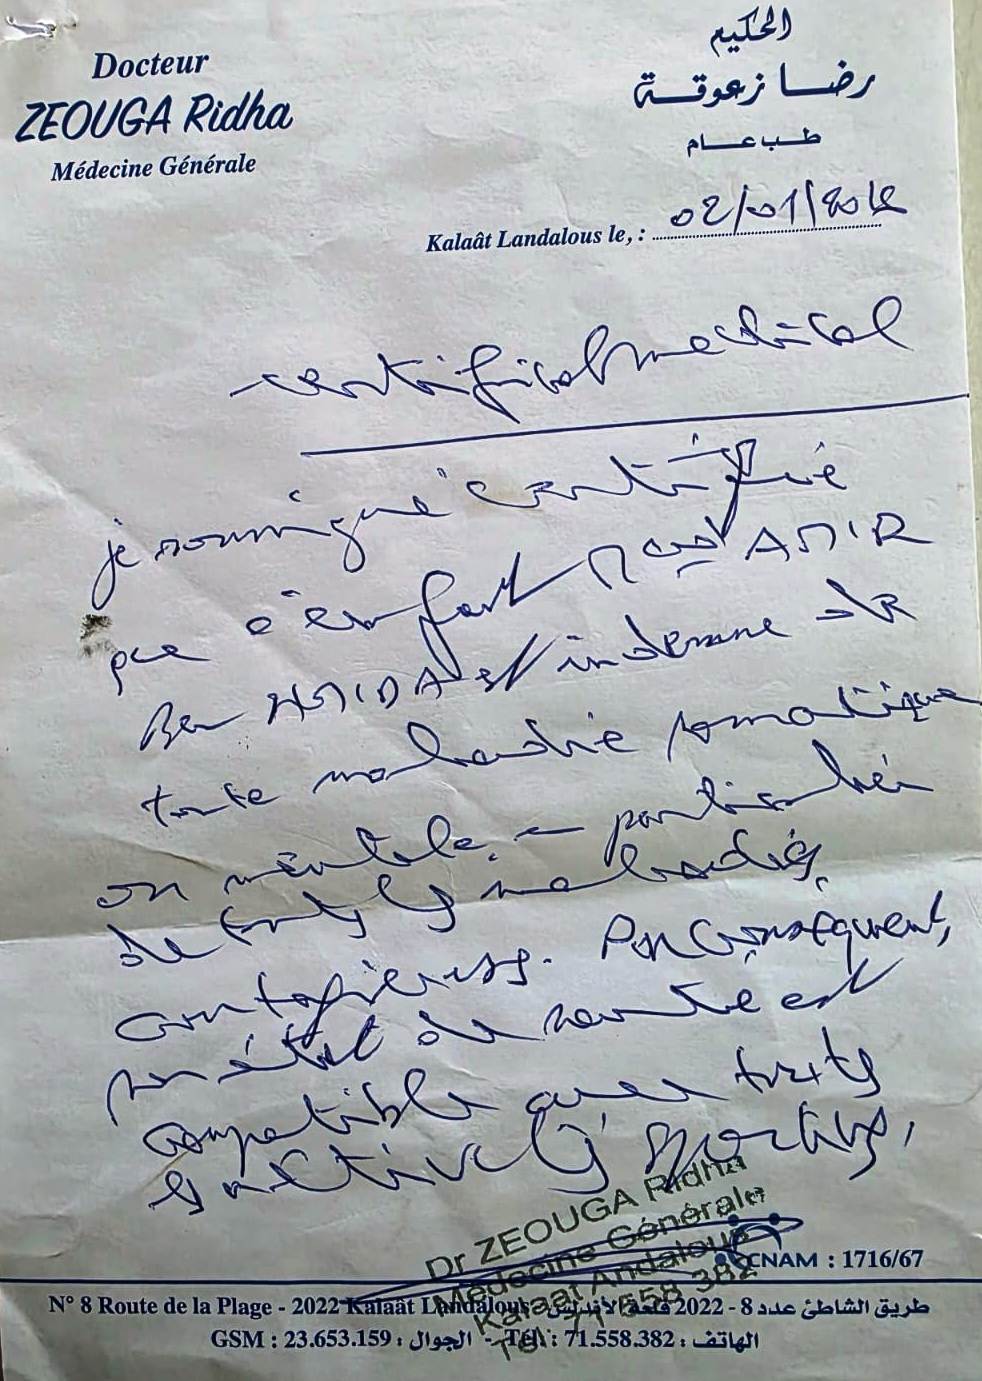 Docteur
ZEOUGA Ridha
Médecine Générale
الحكيم
رضا زعوقة
طب عام
Kalaât Landalous le, : 02/01/2012
certificat médical
je soussigné certifie
que l'enfant AMIR
Ben HMIDA est indemne de
toute maladie somatique
ou mentale. particulier
de toutes les maladies
contagieuses. Par conséquent,
son état de santé est
compatible avec toutes
les activités sportives,
Dr ZEOUGA Ridha
Médecine Générale
Kalaat Andalous
Tél : 71 558 382
CNAM : 1716/67
N° 8 Route de la Plage - 2022 Kalaât Landalous طريق الشاطئ عدد 8 - 2022 قلعة الأندلس
GSM : 23.653.159 : الجوال - Tél. : 71.558.382 : الهاتف